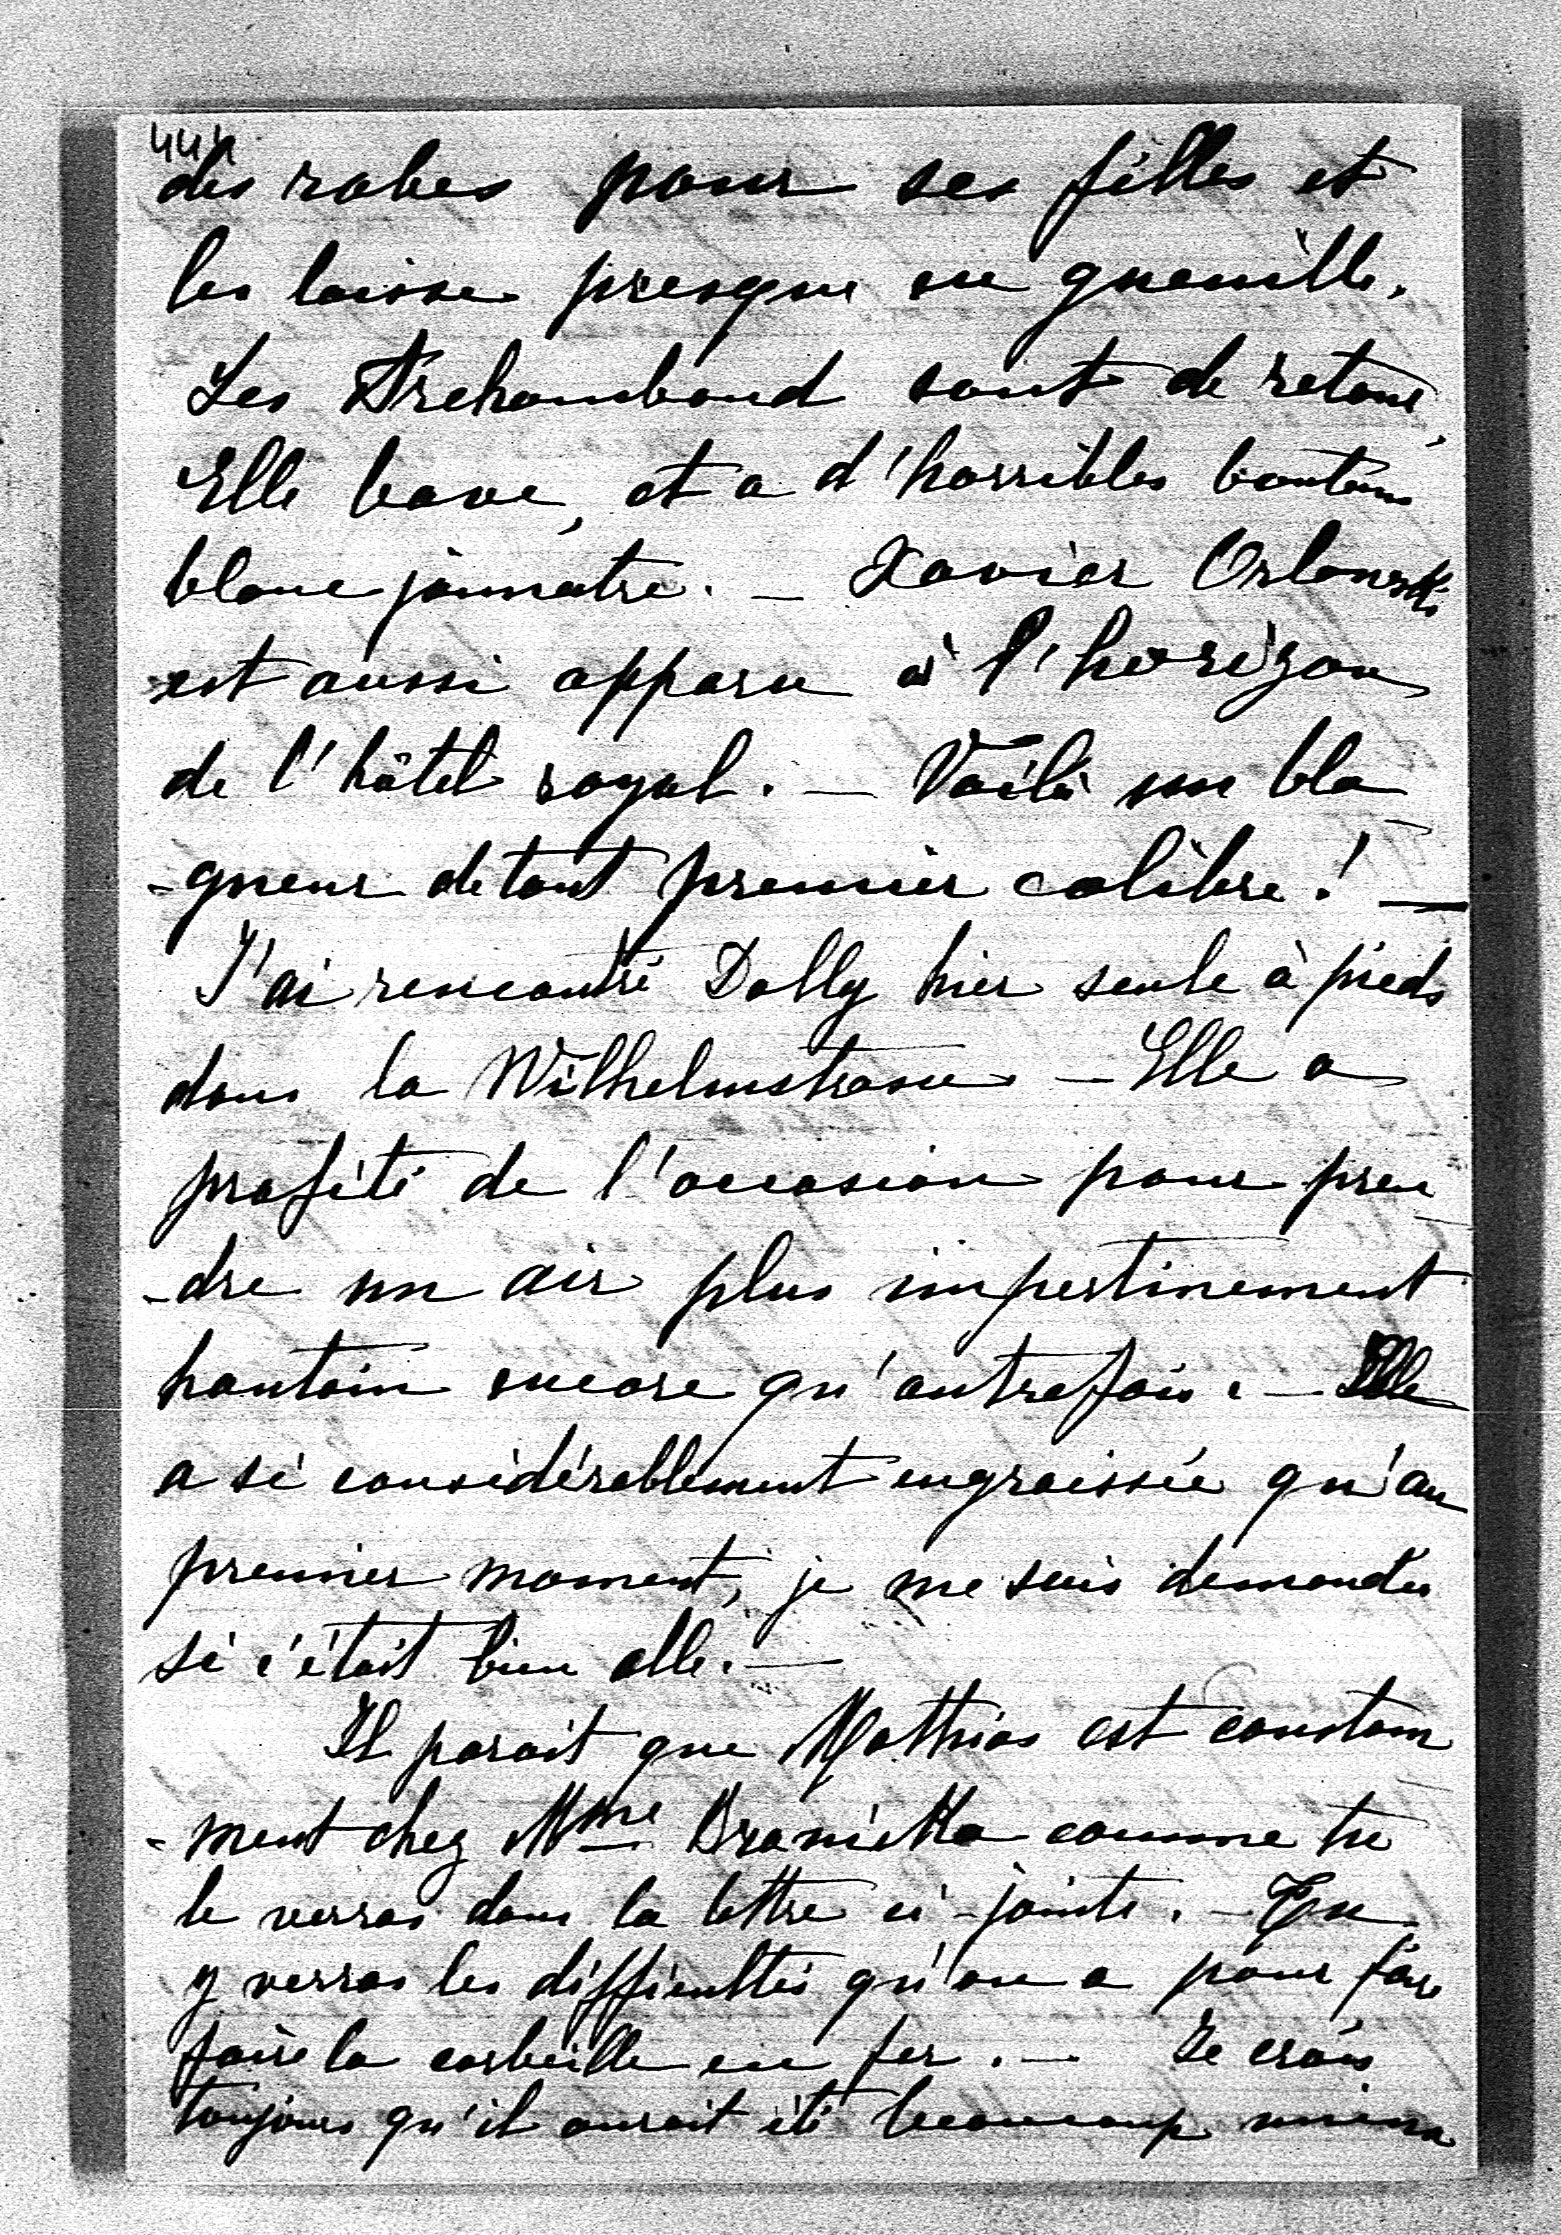 444
des robes pour ses filles et
les laisse presque en guenille.
Les Archambaud sont de retour,
Elle bave, et a d'horribles boutons
blanc jaunatre. — Xavier Orlowski
est aussi apparu à l'horizon
de l'hôtel royal. — Voilà un bla
-gueur de tout premier calibre! —
J'ai rencontré Dolly hier seule à pieds
dans la Wilhelmstrasse — Elle a
profité de l'occasion pour pren
-dre un air plus impertinement
hautain encore qu'autrefois. — Elle
a si considérablement engraissée qu'au
premier moment, je me suis demandée
si c'était bien elle. —
Il parait que Mathias est constam
-ment chez Mme Branicka comme tu
le verras dans la lettre ci-jointe. — Tu
y verras les difficultés qu'on a pour faire
faire la corbeille en fer. — Je crois
toujours qu'il aurait été beaucoup mieux